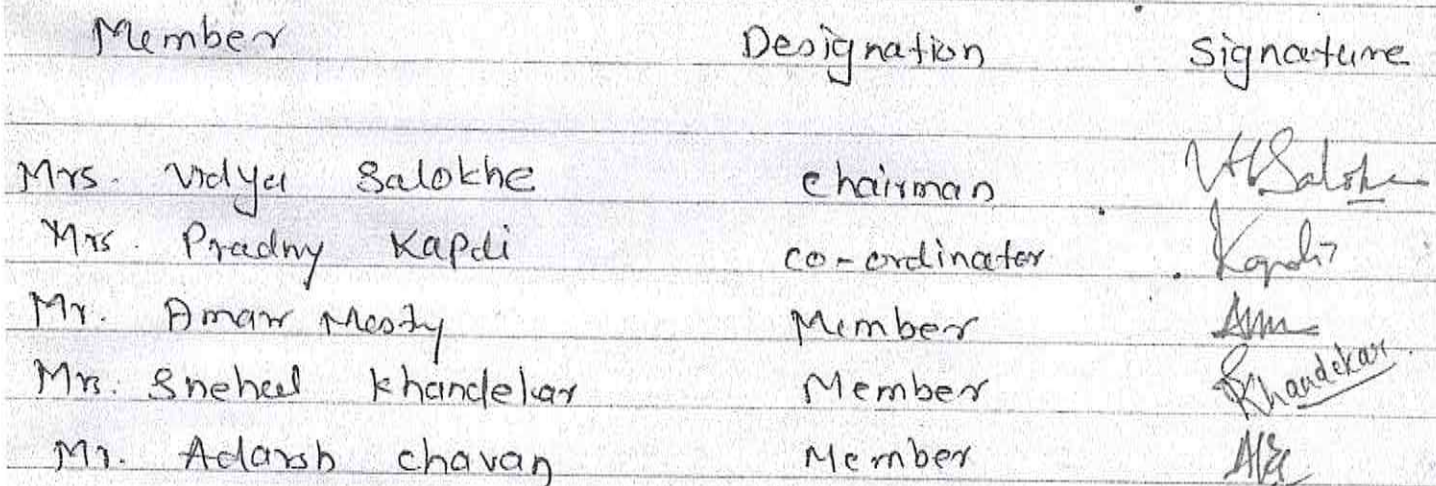 Member Designation Signature
Mrs. Vidya Salokhe chairman VHSalokhe
Mrs. Pradny Kapdi co-ordinator Kapdi
Mr. Amar Mesty Member
Mrs. Snehal Khandekar Member Khandekar
Mr. Adarsh chavan Member